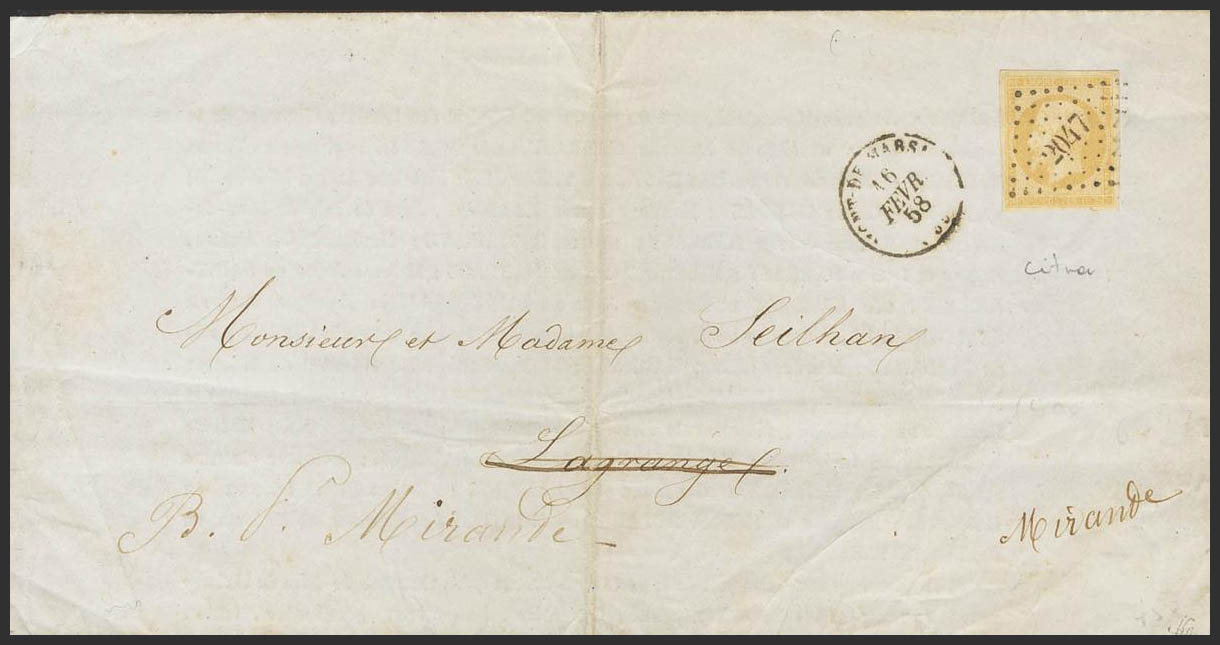 MONT-DE-MARSAN
16
FEVR.
58
2047
Monsieur et Madame Seilhan
Lagrange.
B. P. Mirande
Mirande